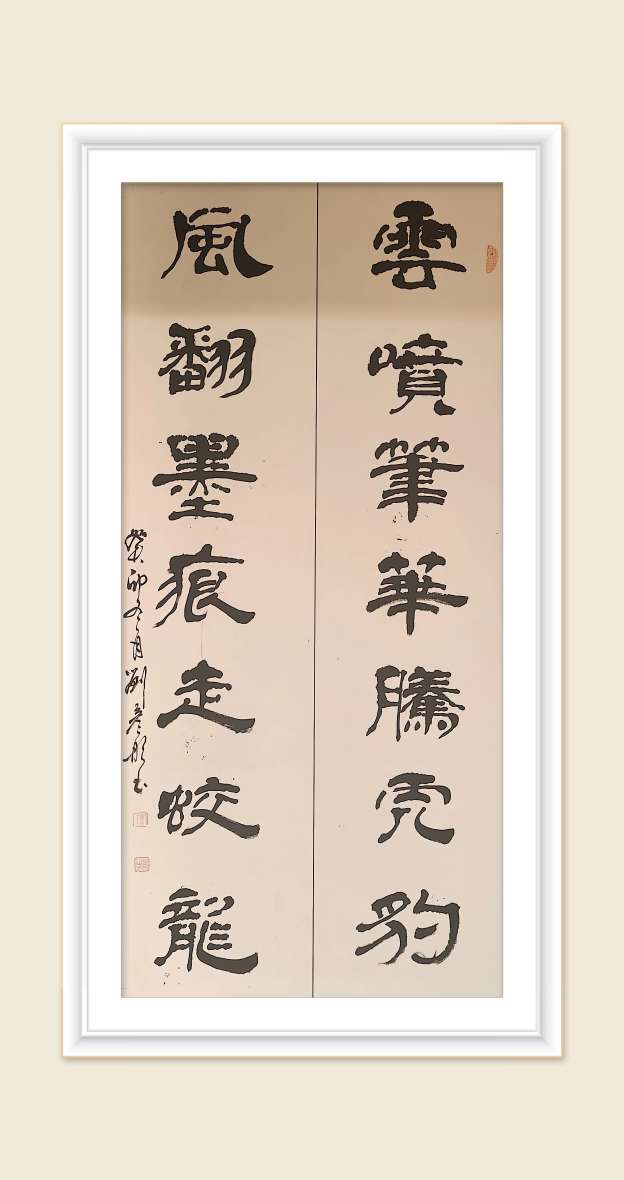 雲噴筆華騰虎豹
風翻墨痕走蛟龍
癸卯冬月劉彥彤書